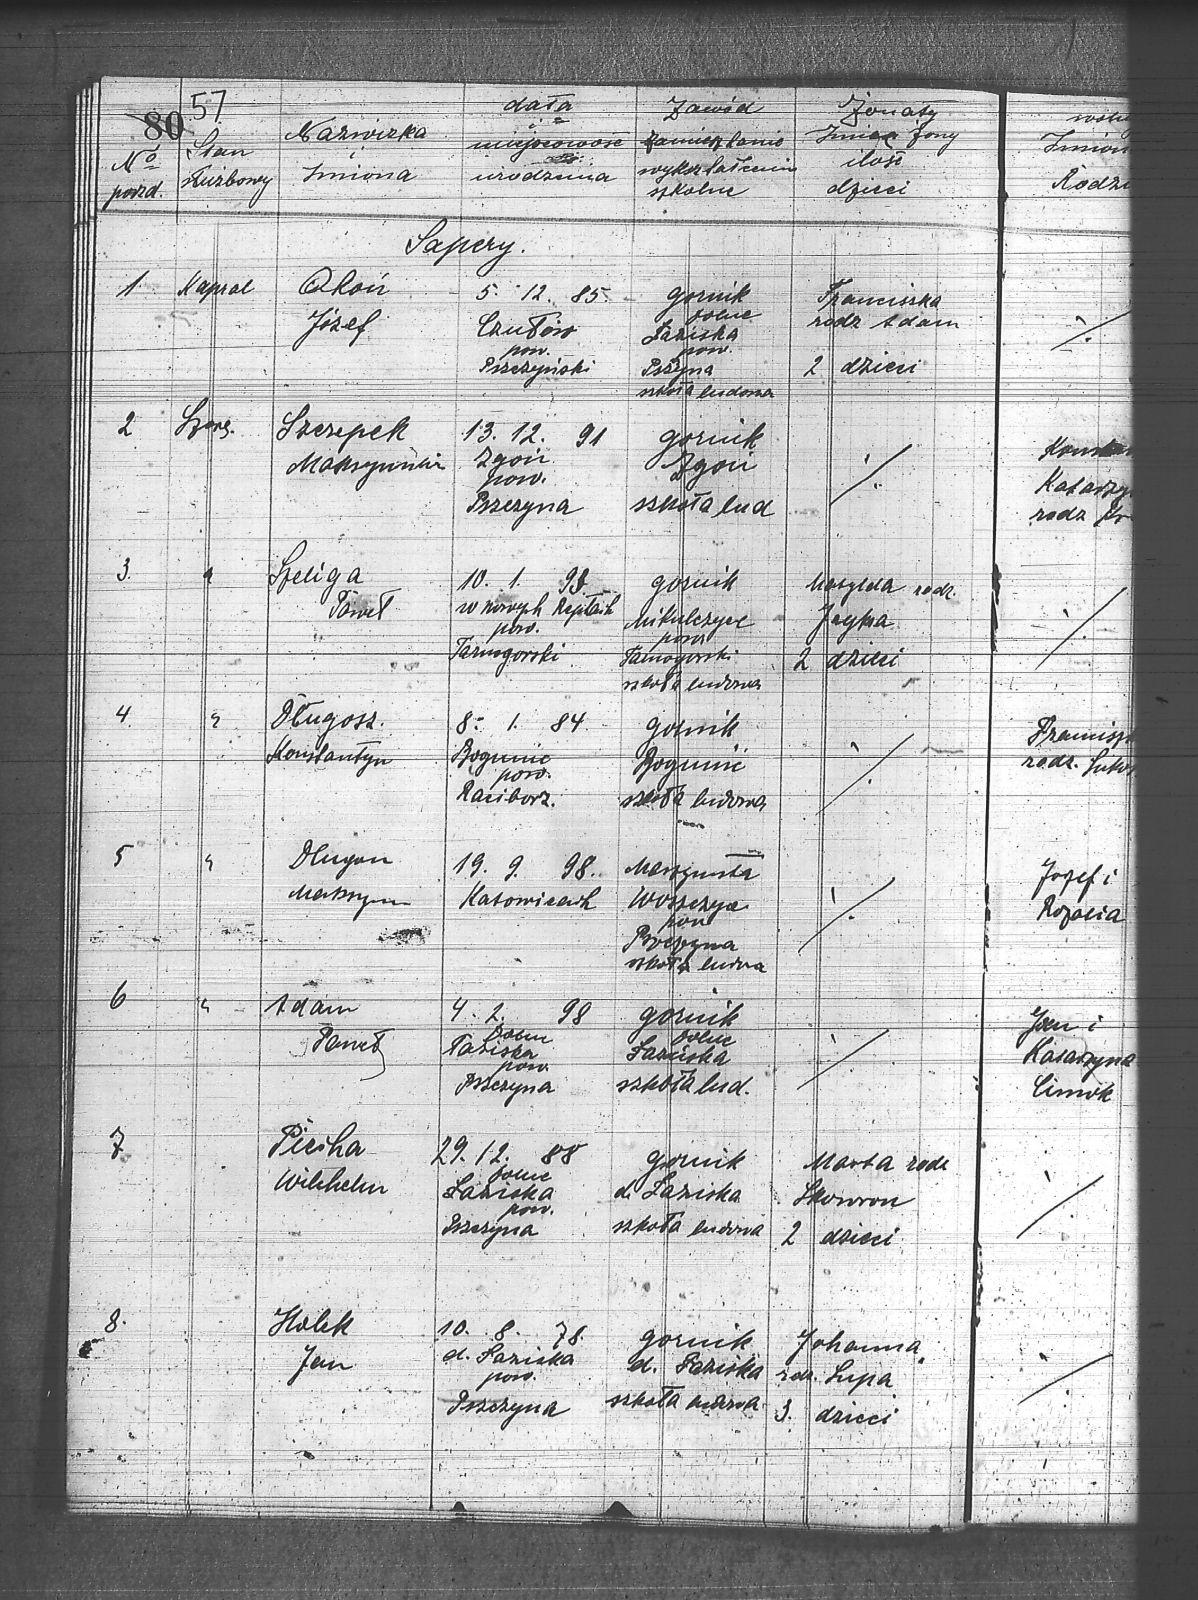 80 57
No pozd.
Stan służbowy
Nazwizka i Imiona
data i miejscowość urodzenia
Zawód zamieszkanie wykształcenie szkolne
Żonaty Imien żony ilość dzieci
Rodzi
Sapery.
1 Kapral
Okoń Józef
5. 12. 85.
Czułów
pow.
Pszczyński
gornik
dolne
Łaziska
pow.
Pszyna
szkoła ludowa
Franciszka
rodz Adam
2 dzieci
/.
2 Szereg.
Szczepek
13. 12. 91
Zgoń
pow.
Pszczyna
gornik
Zgoń
szkoła lud
/.
Katarzy
rodz
3. "
Szeliga
Paweł
10. 1. 93
w nowych Reptach
pow.
Tarnogorski
gornik
Mikulczyce
pow.
Tarnogorski
szkoła ludowa
Matylda rodz.
2 dzieci
/.
4 "
Długosz.
Konstantyn
8. 1. 84
Bogunic
pow.
Raciborz.
gornik
Bogunic
szkoła ludowa
/.
Franciszk
rodz.
5 "
Dlugon
Maksym
19. 9. 98.
Katowicach
Woszczyce
pow
Pszczyna
szkoła ludowa
/.
Jozef i
Rozalia
6 "
Adam
Paweł
4. 2. 98
dolne
Łaziska
pow.
Pszczyna
gornik
dolne
Łaziska
szkoła lud.
/.
Jan i
Katarzyna
Cimok
7
Piecha
Wilhelm
29. 12. 88
dolne
Łaziska
pow.
Pszczyna
gornik
d. Łaziska
szkoła ludowa
Marta rodz
Skowron
2 dzieci
/.
8.
Holek
Jan
10. 8. 78
d. Łaziska
pow.
Pszczyna
gornik
d. Łaziska
szkoła ludowa
Johanna
rodz. Lupa
3. dzieci
/.